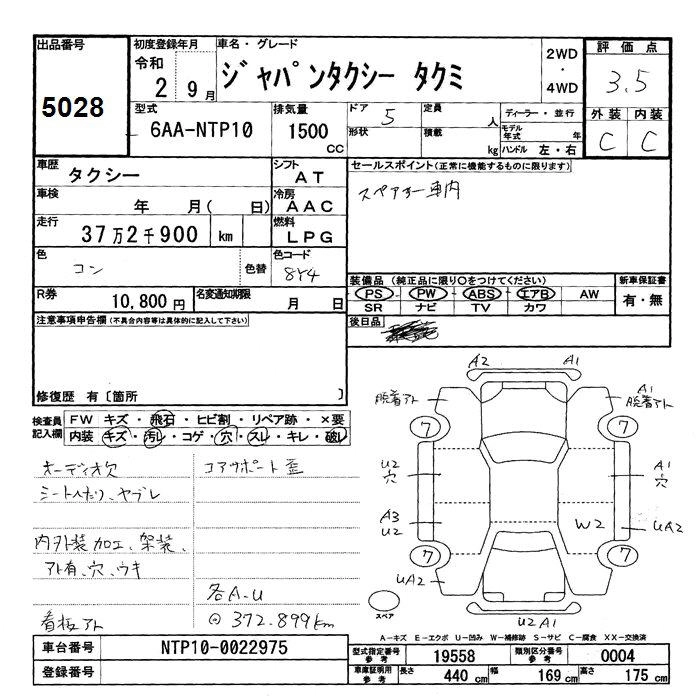 出品番号
5028
初度登録年月
令和
2 9月
車名・グレード
ジャパンタクシー タクミ
2WD
・
4WD
評価点
3.5
型式
6AA-NTP10
排気量
1500
CC
ドア 5
定員
人
形状
積載
kg
ディーラー・並行
モデル年式 年
ハンドル 左・右
外装 内装
C C
車歴
タクシー
シフト
AT
車検
年 月( 日)
冷房
AAC
走行
37万2千900 km
燃料
LPG
色
コン
色替
色コード
8Y4
R券
10,800円
名変通知期限
月 日
セールスポイント(正常に機能するものに限ります)
スペアキー車内
装備品(純正品に限り○をつけてください)
PS PW ABS エアB AW
SR ナビ TV カワ
新車保証書
有・無
後日品
注意事項申告欄(不具合内容等は具体的に記入して下さい)
修復歴 有〔箇所 〕
検査員記入欄
FW キズ・飛石・ヒビ割・リペア跡・×要
内装 キズ・汚レ・コゲ・穴・スレ・キレ・破レ
オーディオ欠
シートヘタリ、ヤブレ
内外装加工、架装、
アト有、穴、ウキ
看板アト
コアサポート歪
各A-U
372,899km
A2 A1
脱着アト
A1
脱着アト
7 7
U2
穴
A1
穴
A3
U2
W2
UA2
7 7
UA2
U2A1
スペア
A-キズ E-エクボ U-凹み W-補修跡 S-サビ C-腐食 XX-交換済
車台番号
NTP10-0022975
登録番号
型式指定番号
参考
19558
類別区分番号
参考
0004
車庫証明用
参考
長さ
440 cm
幅
169 cm
高さ
175 cm